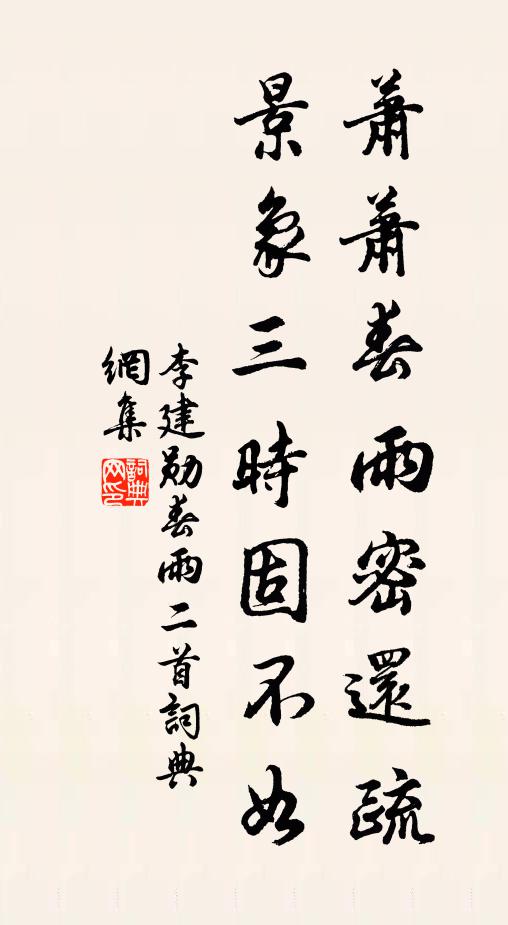 蕭蕭春雨密還疏
景象三時固不如
李建勛春雨二首詞典
網集
詞典
网印